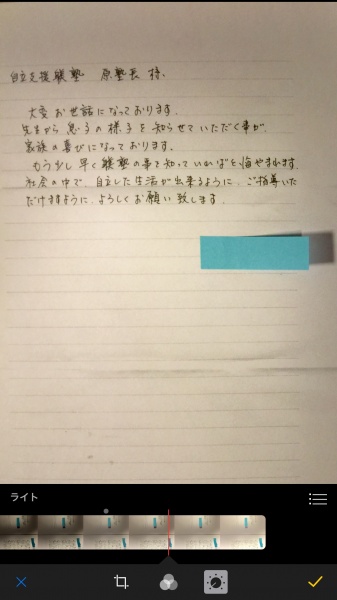 自立支援継塾 原塾長 様.
大変お世話になっております.
先生から息子の様子を知らせていただく事が、
家族の喜びになっております.
もう少し早く継塾の事を知っていればと悔やまれます.
社会の中で、自立した生活が出来るように、ご指導いた
だけますように、よろしくお願い致します.
ライト